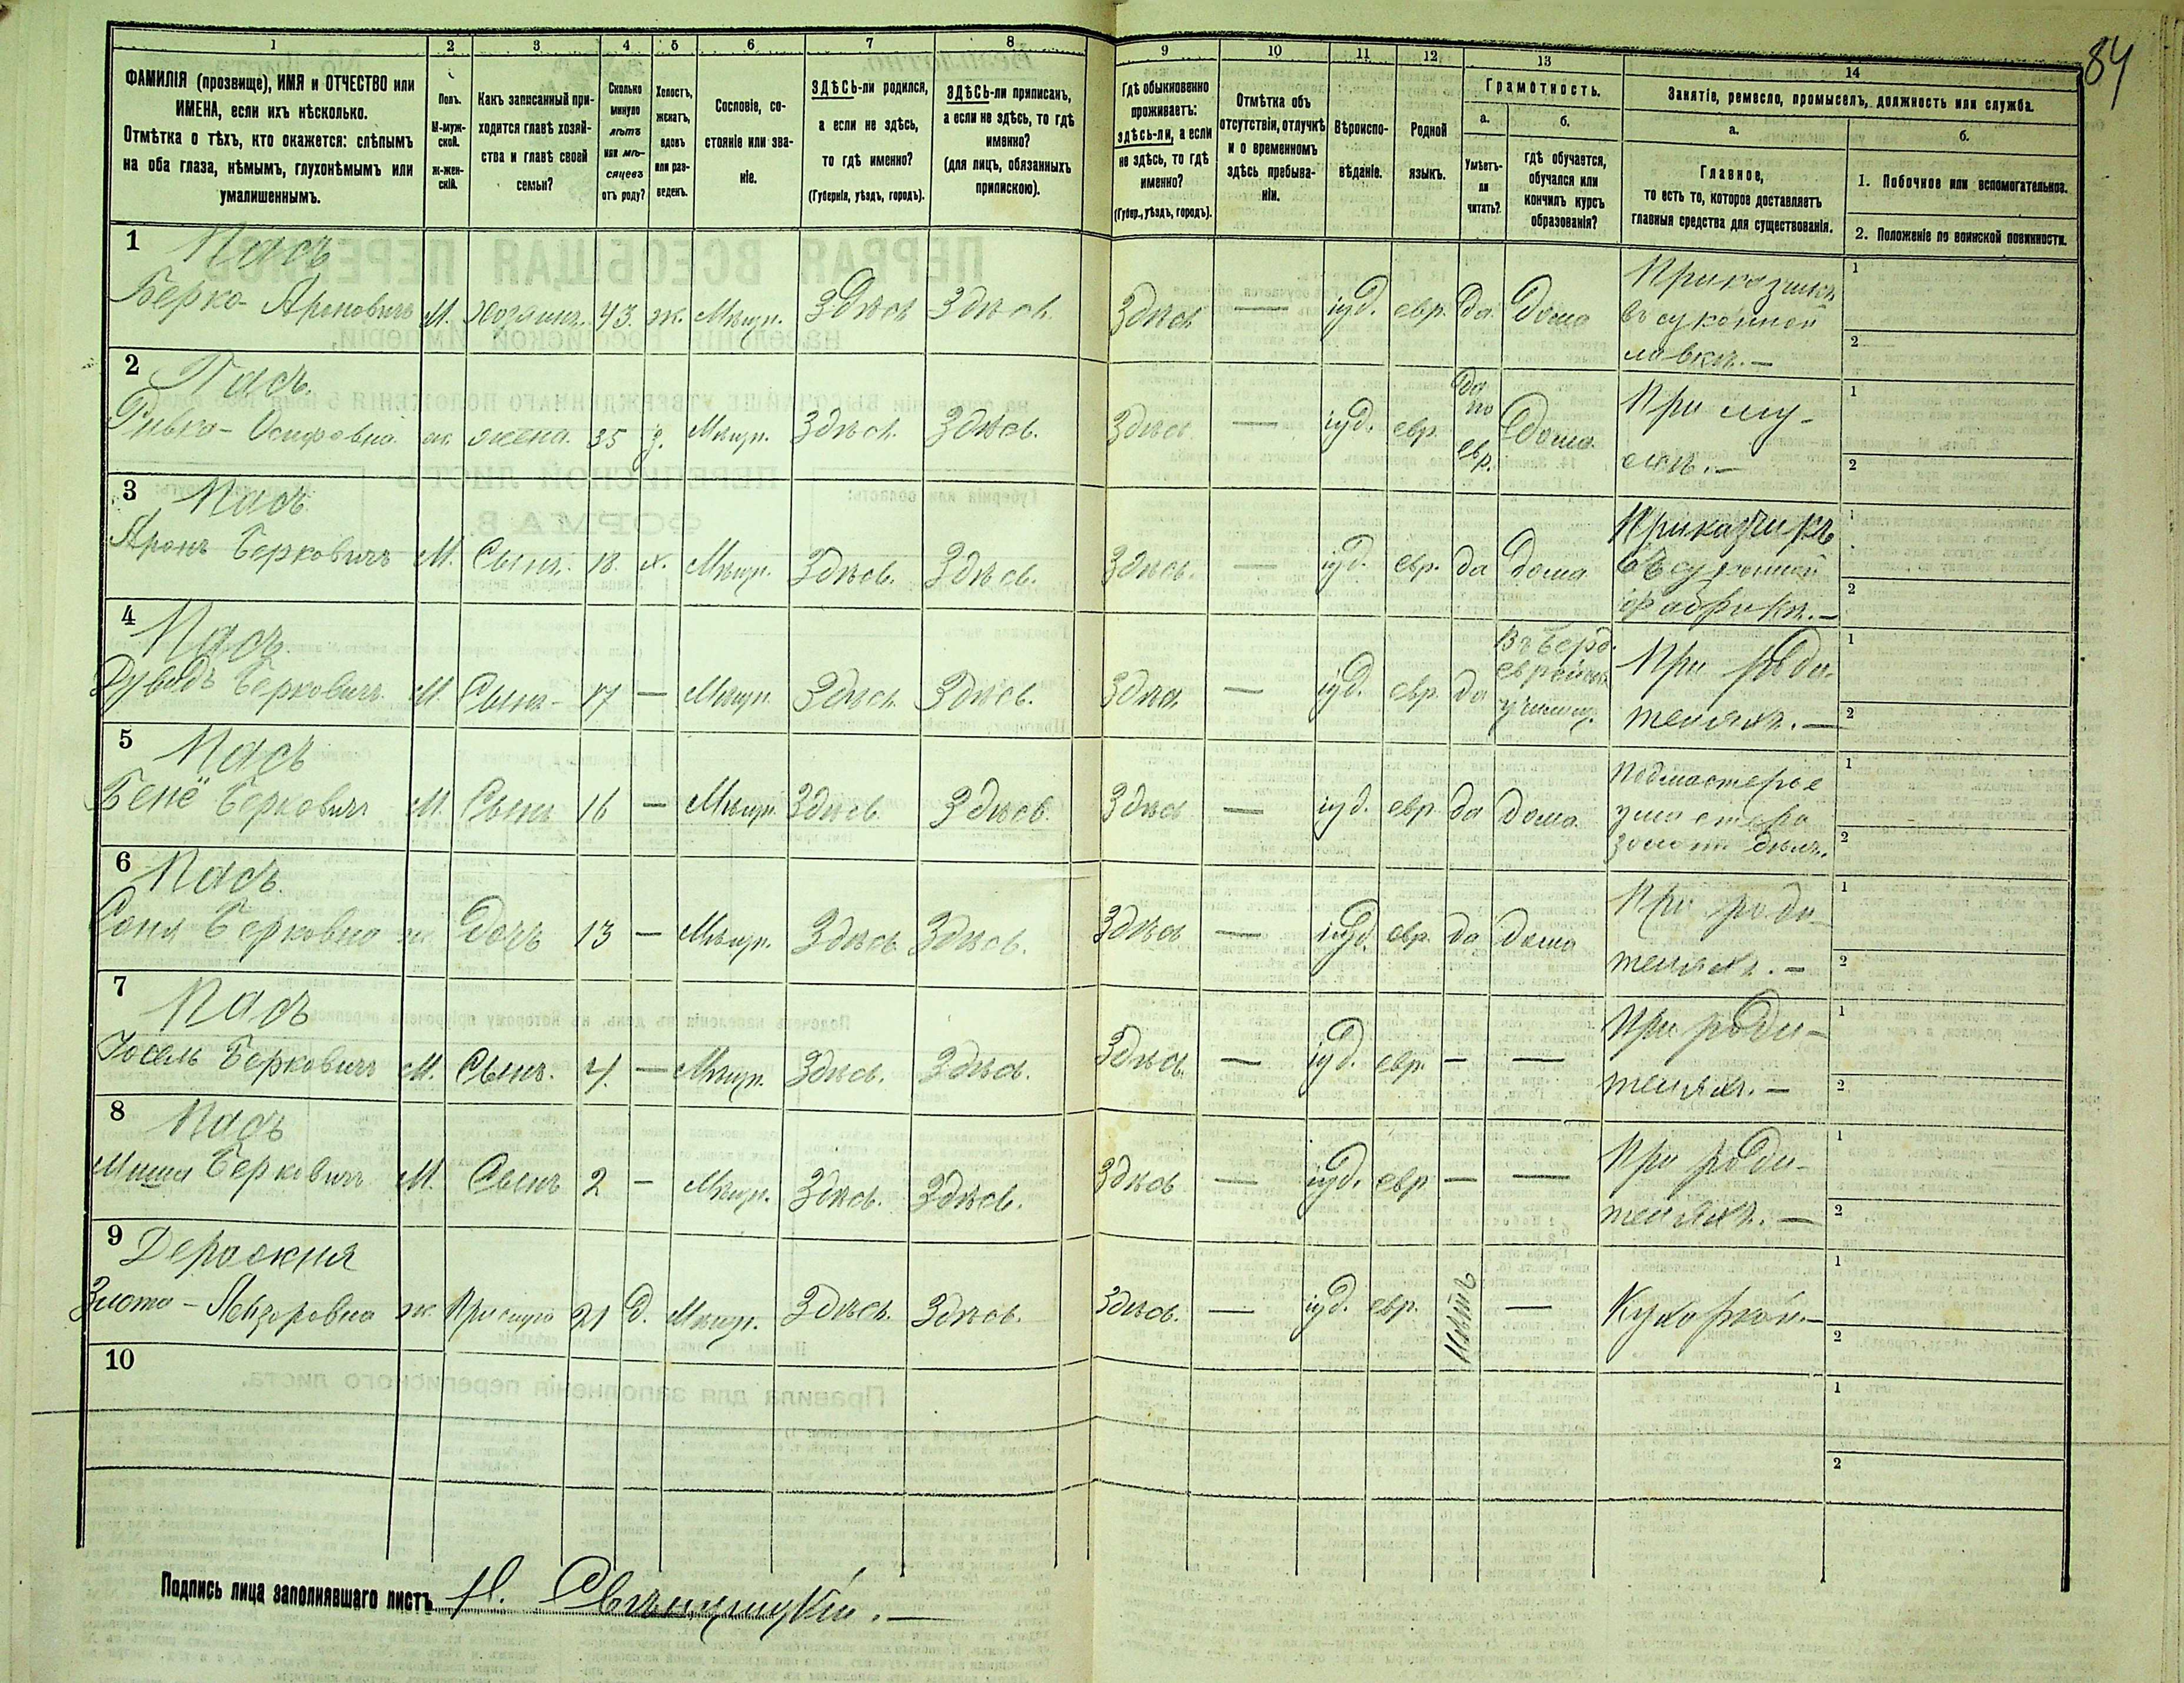 84
1 2 3 4 5 6 7 8 9 10 11 12 13 14
ФАМИЛІЯ (прозвище), ИМЯ и ОТЧЕСТВО или
ИМЕНА, если ихъ нѣсколько.
Отмѣтка о тѣхъ, кто окажется: слѣпымъ
на оба глаза, нѣмымъ, глухонѣмымъ или
умалишеннымъ.
Полъ.
М-муж-
ской.
Ж-жен-
скій.
Какъ записанный при-
ходится главѣ хозяй-
ства и главѣ своей
семьи?
Сколько
минуло
лѣтъ
или мѣ-
сяцевъ
отъ роду?
Холостъ,
женатъ,
вдовъ
или раз-
веденъ.
Сословіе, со-
стояніе или зва-
ніе.
ЗДѢСЬ-ли родился,
а если не здѣсь,
то гдѣ именно?
(Губернія, уѣздъ, городъ).
ЗДѢСЬ-ли приписанъ,
а если не здѣсь, то гдѣ
именно?
(для лицъ, обязанныхъ
припискою).
Гдѣ обыкновенно
проживаетъ:
здѣсь-ли, а если
не здѣсь, то гдѣ
именно?
(Губер., уѣздъ, городъ).
Отмѣтка объ
отсутствіи, отлучкѣ
и о временномъ
здѣсь пребыва-
ніи.
Вѣроиспо-
вѣданіе.
Родной
языкъ.
Грамотность.
а.
Умѣетъ-
ли
читать?
б.
гдѣ обучается,
обучался или
кончилъ курсъ
образованія?
Занятіе, ремесло, промыселъ, должность или служба.
а.
Главное,
то есть то, которое доставляетъ
главныя средства для существованія.
б.
1. Побочное или вспомогательное.
2. Положеніе по воинской повинности.
1 Пасъ
Берко- Ароновичъ М. хозяинъ. 43. ж. Мѣщ. Здѣсь Здѣсь. Здѣсь — іуд. евр. да. дома
Приказчикъ
въ суконной
лавкѣ. —
1
2
2 Пасъ.
Ривка- Осиповна ж. жена. 35 з. Мѣщ. Здѣсь. Здѣсь. Здѣсь — іуд. евр.
да
по
евр.
дома.
При му-
жѣ. —
1
2
3 Пасъ
Аронъ Берковичъ М. Сынъ. 18. х. Мѣщ. Здѣсь. Здѣсь. Здѣсь. — іуд. евр. да дома
Приказчикъ
въ суконной
фабрикѣ. —
1
2
4 Пасъ.
Дувидъ Берковичъ М. Сынъ- 17 — Мѣщ. Здѣсь. Здѣсь. Здѣсь — іуд. евр. да
Въ Берд.
еврейск.
училищ.
При роди-
теляхъ. —
1
2
5 Пасъ
Бенё Берковичъ М. Сынъ 16 — Мѣщ. Здѣсь. Здѣсь. Здѣсь — іуд. евр. да дома.
Подмастерье
золот. дѣлъ.
1
2
6 Пасъ.
Соня Берковна ж. дочь 13 — Мѣщ. Здѣсь Здѣсь. Здѣсь — іуд. евр. да дома
При роди-
теляхъ. —
1
2
7 Пасъ
Іосель Берковичъ М. Сынъ. 4. — Мѣщ. Здѣсь. Здѣсь. Здѣсь. — іуд. евр. — —
При роди-
теляхъ. —
1
2
8 Пасъ
Миша Берковичъ М. Сынъ 2 — Мѣщ. Здѣсь. Здѣсь. Здѣсь — іуд. евр — —
При роди-
теляхъ. —
1
2
9
Злота- Лейзеровна ж. Прислуга 21 д. Мѣщ. Здѣсь. Здѣсь. Здѣсь. — іуд. евр. Нѣтъ — Кухаркой. —
1
2
10
1
2
Подпись лица заполнявшаго листъ